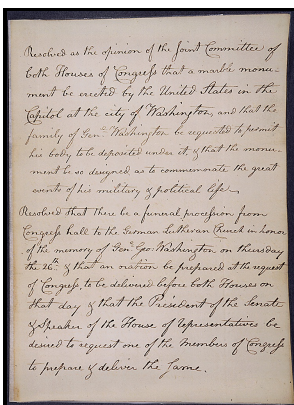 Resolved as the opinion of the Joint Committee of
both Houses of Congress that a marble monu-
ment be erected by the United States in the
Capitol at the city of Washington, and that the
family of Genl. Washington be requested to permit
his body to be deposited under it, & that the monu-
ment be so designed as to commemorate the great
events of his military & political life.
Resolved that there be a funeral procession from
Congress hall to the German Lutheran Church in honor
of the memory of Genl. Geo. Washington on thursday
the 26th. & that an oration be prepared at the request
of Congress, to be delivered before both Houses on
that day & that the President of the Senate
& Speaker of the House of Representatives be
desired to request one of the Members of Congress
to prepare & deliver the Same.